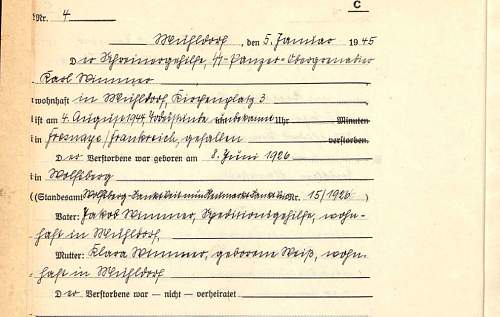 C
Nr. 4
Mühldorf, den 5. Januar 1945
Der Schreinergehilfe, SS-Panzer-Obergrenadier
Karl Wimmer
wohnhaft in Mühldorf, Kirchenplatz 3
ist am 4. August 1944, Todesstunde unbekannt Uhr Minuten
in Fresnaye/Frankreich, gefallen verstorben.
Der Verstorbene war geboren am 8. Juni 1926
in Wolfsberg
(Standesamt Nr. 15/1926)
Vater: Jakob Wimmer, Speditionsgehilfe, wohn-
haft in Mühldorf,
Mutter: Klara Wimmer, geborene Weiß, wohn-
haft in Mühldorf
Der Verstorbene war — nicht — verheiratet